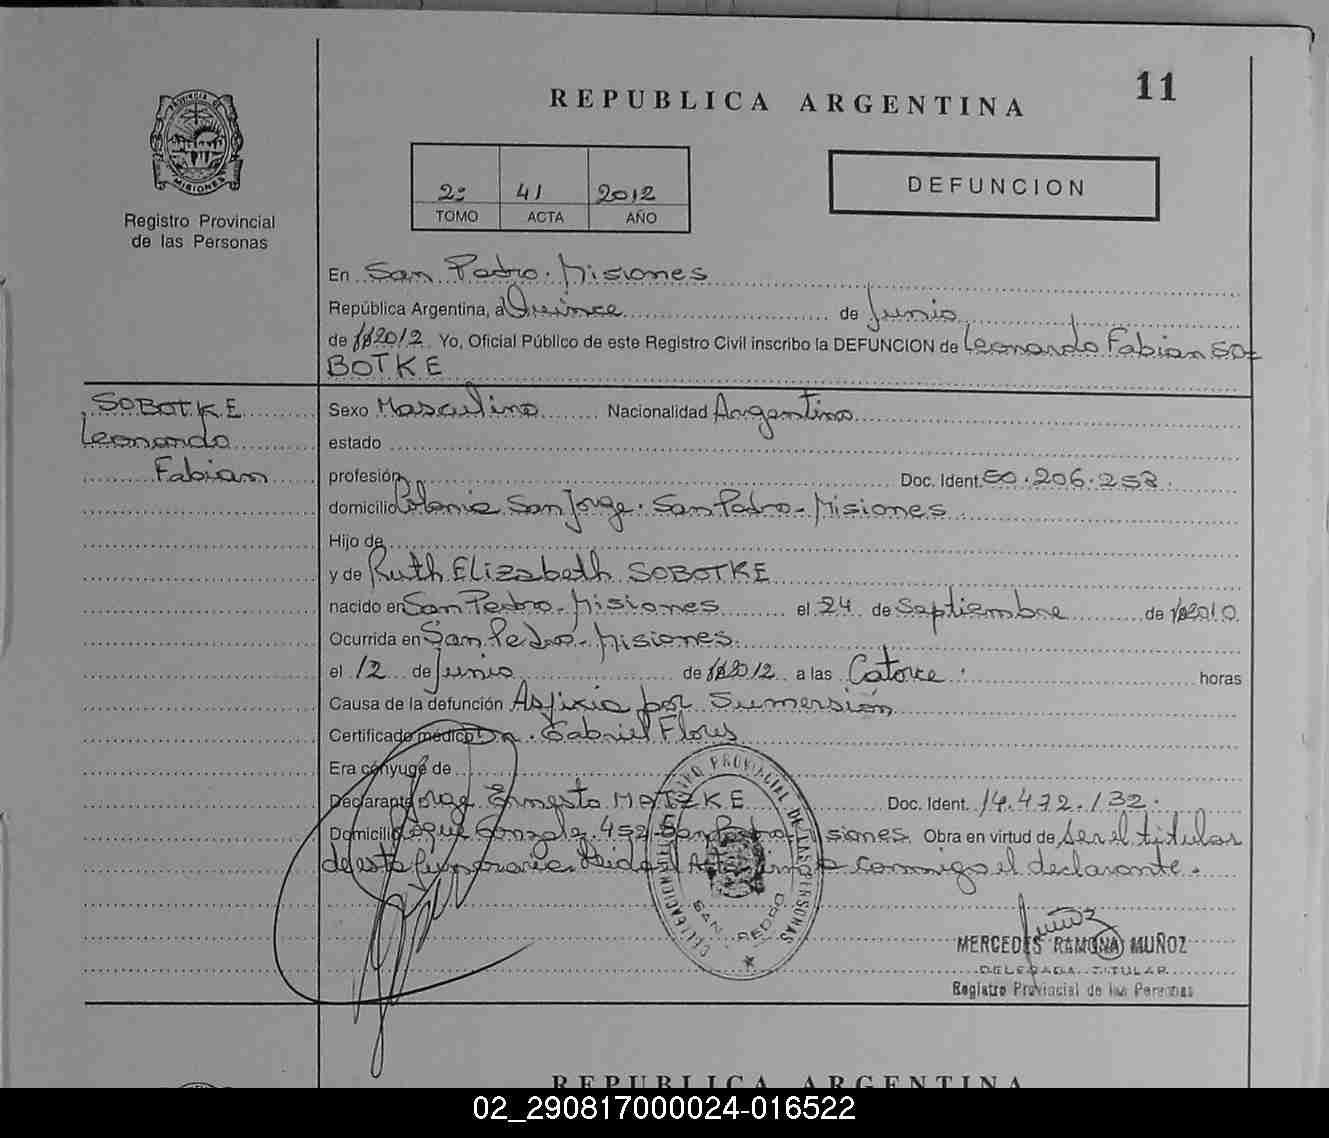 11
REPUBLICA ARGENTINA
PROVINCIA DE
MISIONES
Registro Provincial
de las Personas
2º 41 2012
TOMO ACTA AÑO
DEFUNCION
En San Pedro. Misiones
República Argentina, a Quince de Junio
de 2012 Yo, Oficial Público de este Registro Civil inscribo la DEFUNCION de Leonardo Fabian SO=
BOTKE
SOBOTKE
Leonardo
Fabian
Sexo Masculino Nacionalidad Argentina
estado
profesión Doc. Ident. 50.206.253.
domicilio Colonia San Jorge. San Pedro - Misiones
Hijo de
y de Ruth Elizabeth SOBOTKE
nacido en San Pedro - Misiones el 24 de Septiembre de 2010
Ocurrida en San Pedro - Misiones.
el 12 de Junio de 2012 a las Catorce. horas
Causa de la defunción Asfixia por Sumersión
Certificado médico Dr. Gabriel Flores
Era cónyuge de
Declarante Jorge Ernesto MATZKE Doc. Ident. 14.472.132.
Domicilio Roque Gonzalez 452 San Pedro - Misiones. Obra en virtud de Ser el titular
de esta funeraria. Leida el Acta firma conmigo el declarante.
REGISTRO PROVINCIAL DE LAS PERSONAS
SAN PEDRO
MERCEDES RAMONA MUÑOZ
DELEGADA TITULAR
Registro Provincial de las Personas
REPUBLICA ARGENTINA
02_290817000024-016522